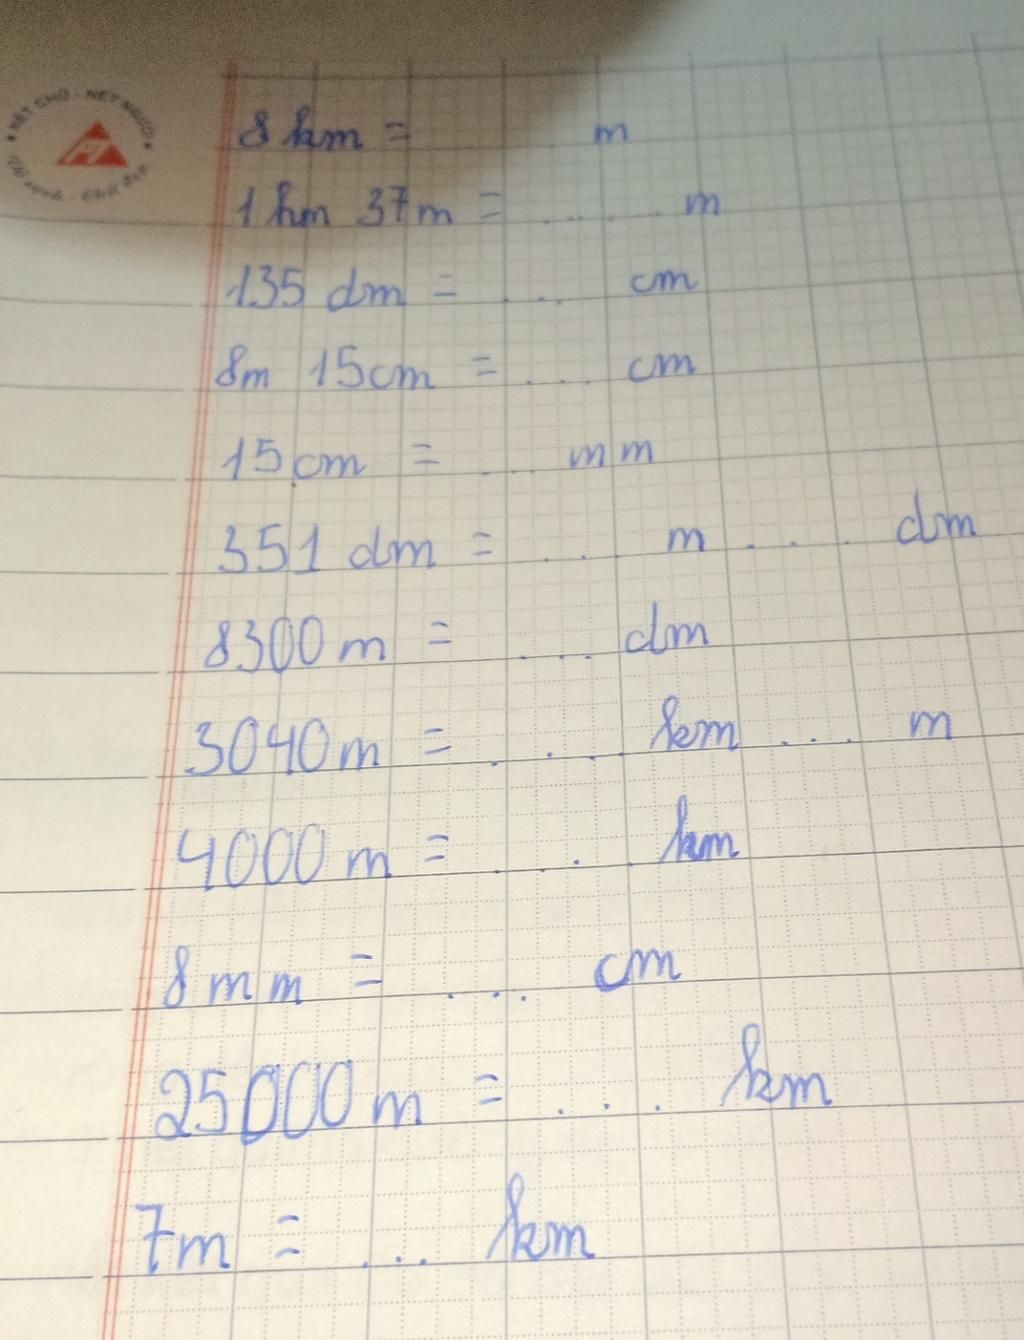 NÉT CHỮ - NẾT NGƯỜI
8 km = m
1 hm 37m = ...... m
135 dm = .... cm
8m 15cm = .... cm
15cm = ... mm
351 dm = ... m .... dm
8300 m = .... dm
3040 m = .... km ... m
4000 m = .... km
8 mm = ... cm
25000 m = ... km
7m = ... km